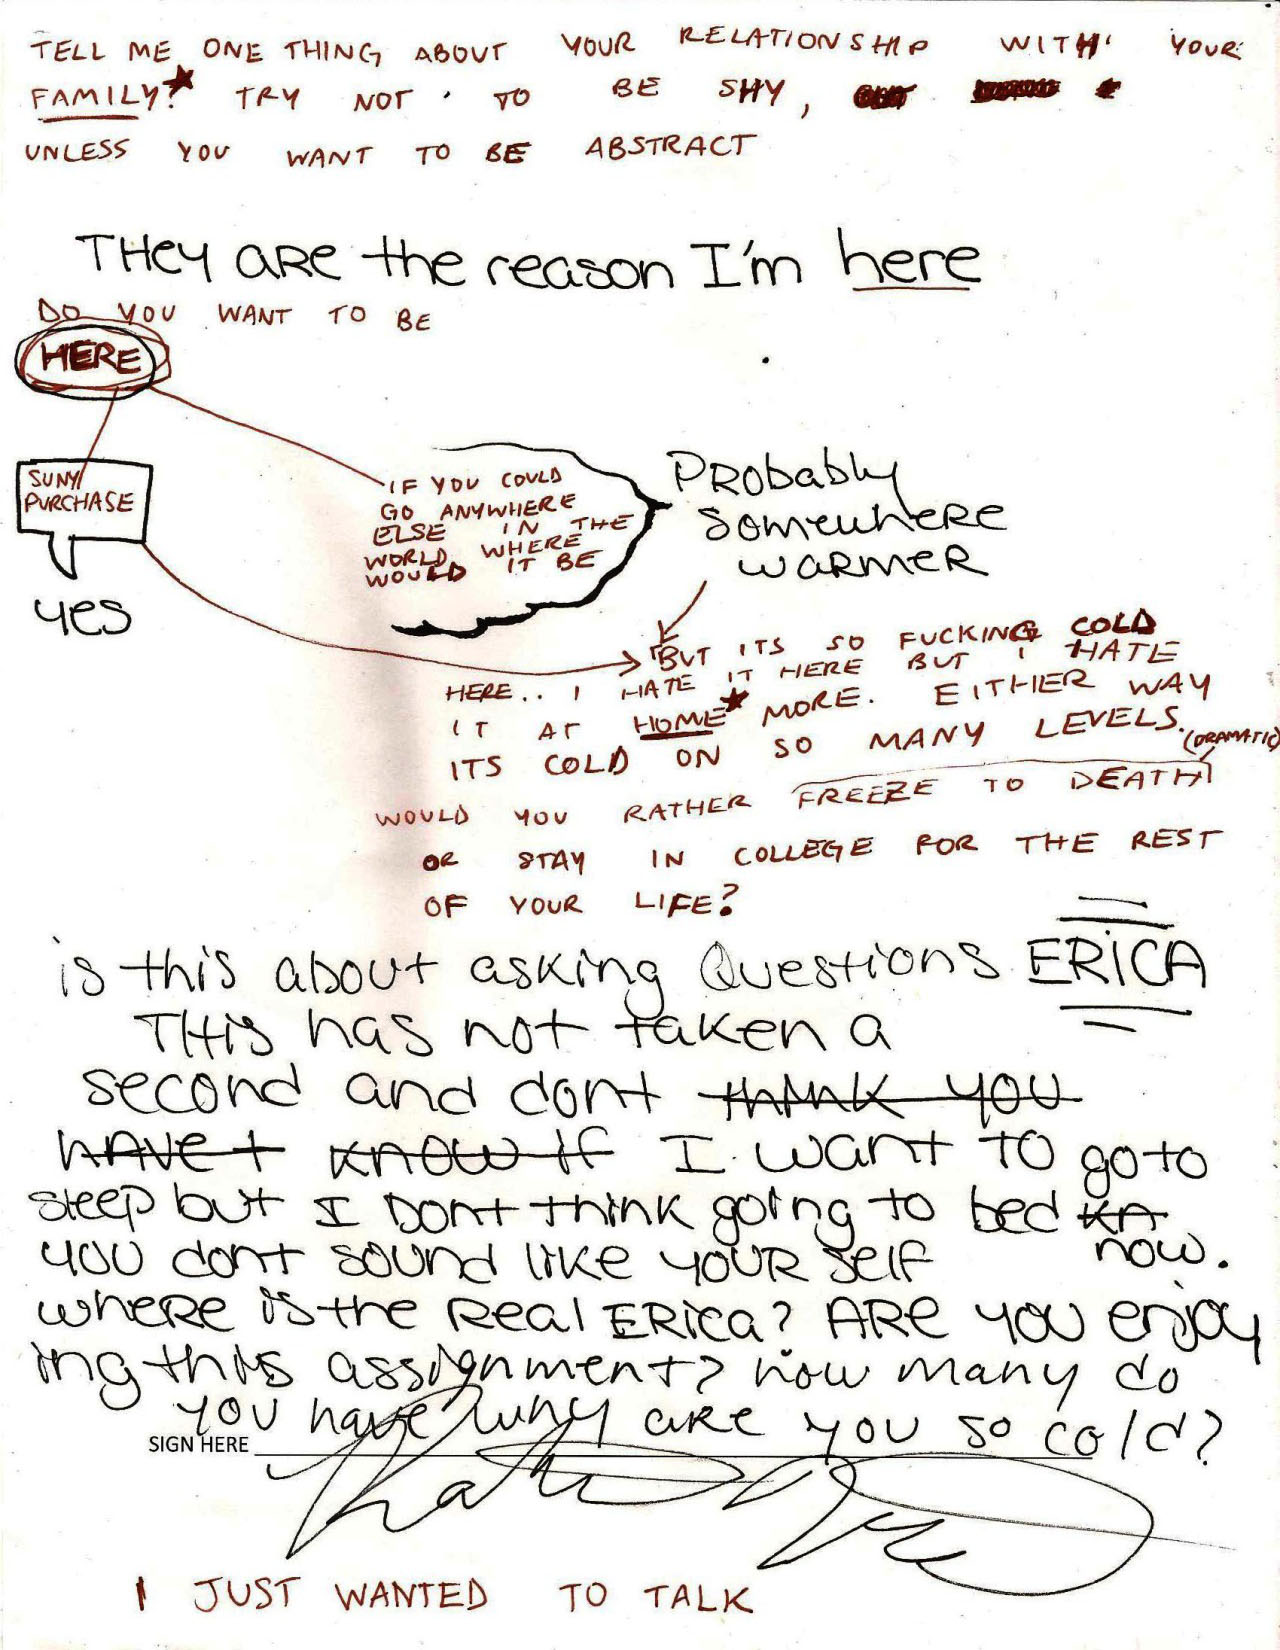 TELL ME ONE THING ABOUT YOUR RELATIONSHIP WITH YOUR
FAMILY?★ TRY NOT TO BE SHY,
UNLESS YOU WANT TO BE ABSTRACT
THey aRe the reason I'm here
DO YOU WANT TO BE
HERE
SUNY
PURCHASE
yes
IF YOU COULD
GO ANYWHERE
ELSE IN THE
WORLD WHERE
WOULD IT BE
PRobably
somewheRe
waRmeR
BUT ITS SO FUCKING COLD
HERE.. I HATE IT HERE BUT I HATE
IT AT HOME★ MORE. EITHER WAY
ITS COLD ON SO MANY LEVELS.
(DRAMATIC)
WOULD YOU RATHER FREEZE TO DEATH
OR STAY IN COLLEGE FOR THE REST
OF YOUR LIFE?
is this about asking Questions ERiCA
THis has not taken a
second and dont think you
have t know if I want TO go to
sleep but I Dont think going to bed kn
you dont sound like youR self now.
wheRe is the Real ERica? ARe you enjoy
ing this assignment? how many do
you have why are you so cold?
SIGN HERE
I JUST WANTED TO TALK